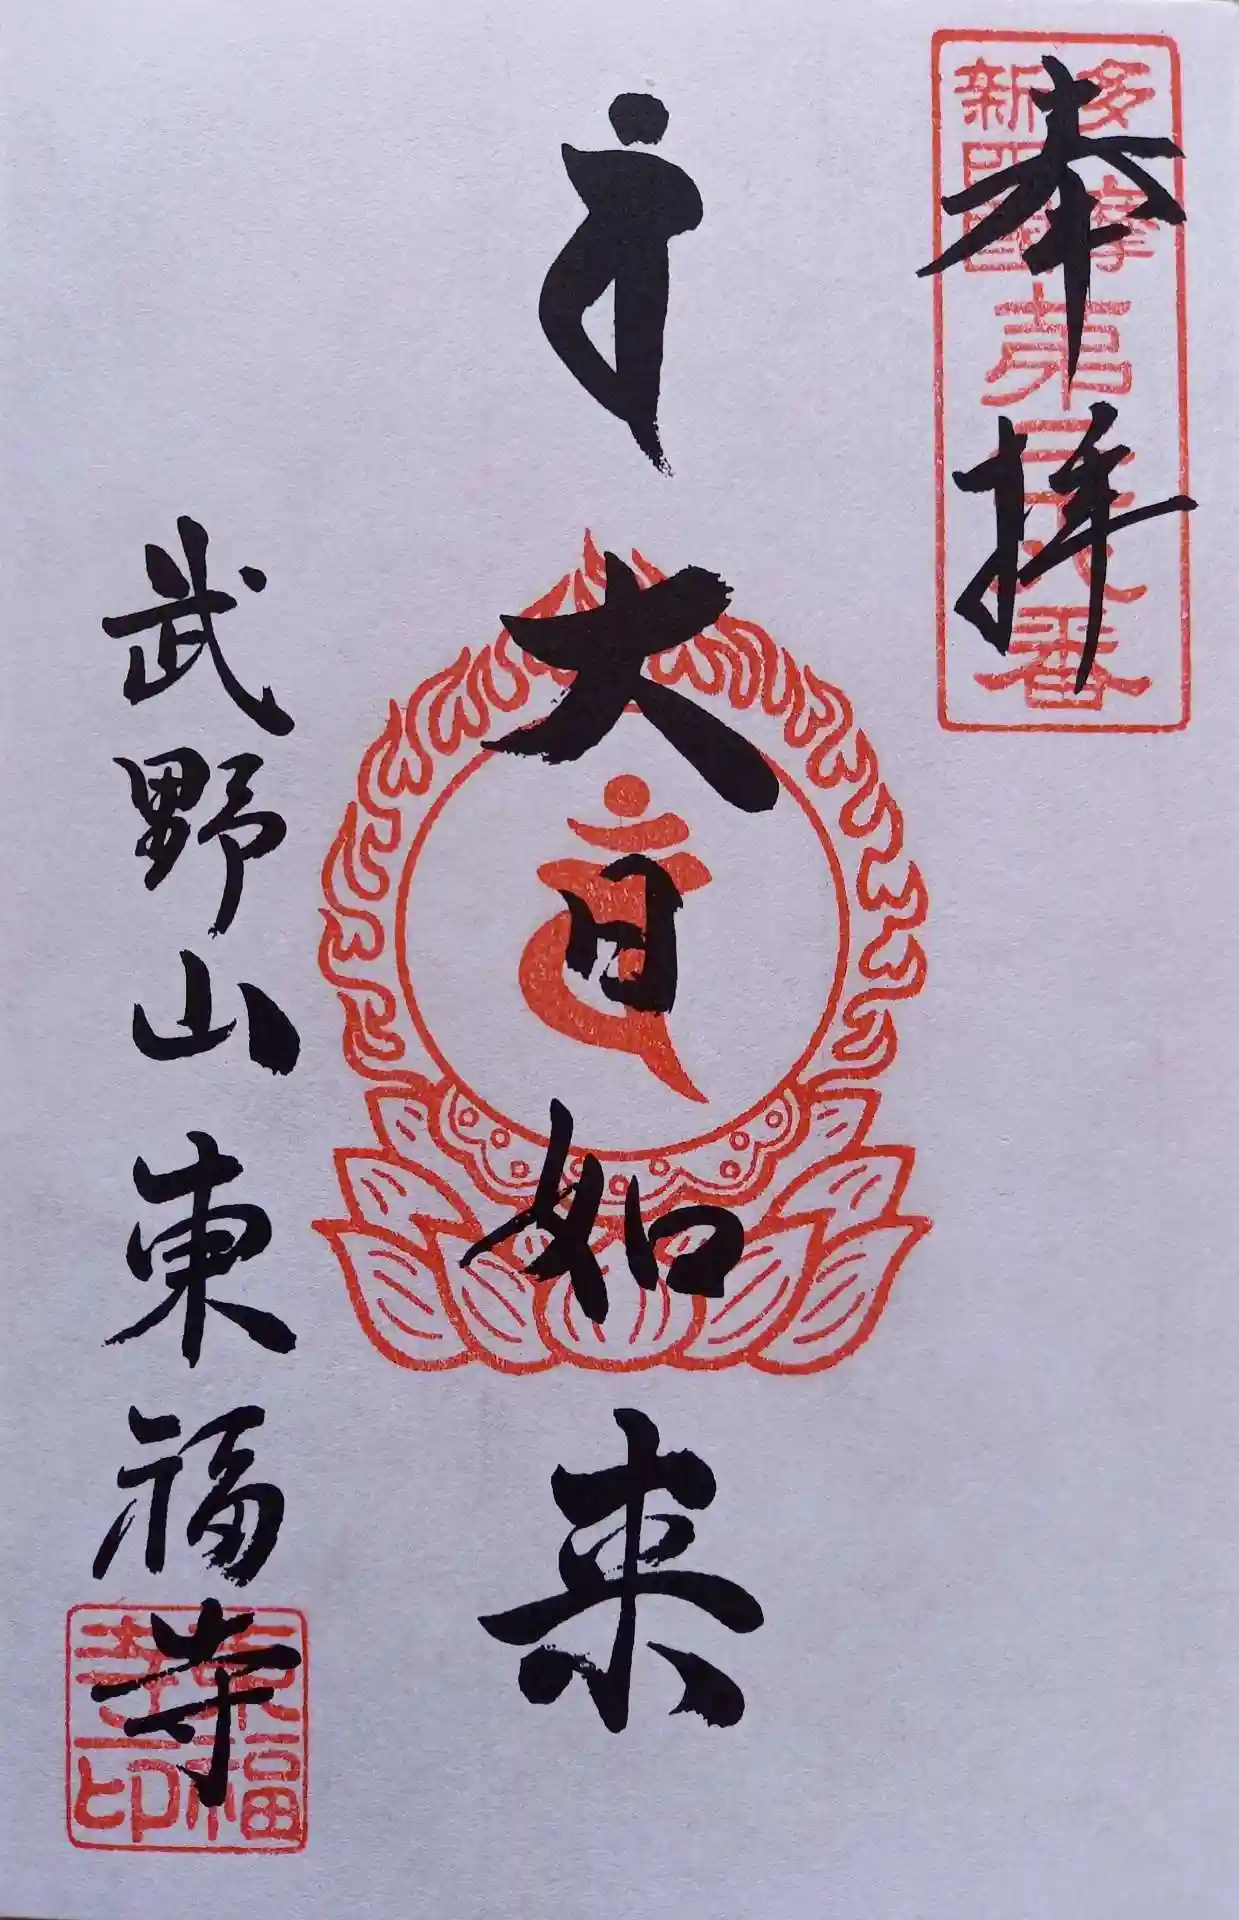 奉拝
多摩
新四国
大日如来
武野山東福寺
東福寺印